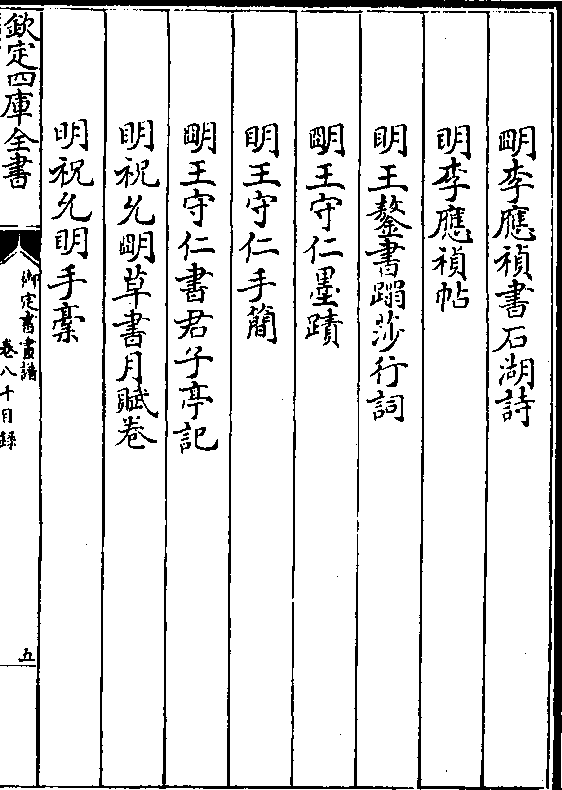 明李應禎書石湖詩
明李應禎帖
明王鏊書蹋莎行詞
明王守仁墨蹟
明王守仁手簡
明王守仁書君子亭記
明祝允明草書月賦卷
明祝允明手稾
欽定四庫全書
御定書畫譜
卷八十目録
五